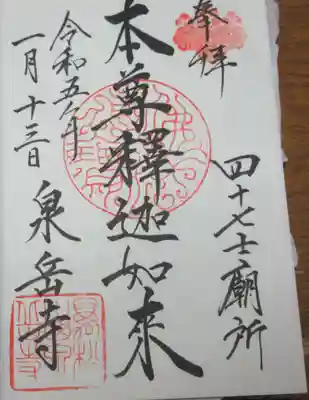 奉拝
四十七士廟所
本尊釋迦如来
泉岳寺
令和五年
一月十三日